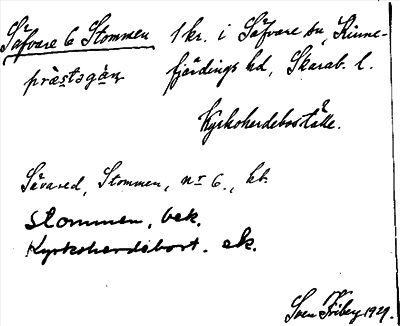 Säfvare 6 Stommen 1 kr. i Säfvare sn, Kinne-
præstəgàn fjärdings hd, Skarab. l.
Kyrkoherdeboställe.
Sävared, Stommen, nr 6., kb.
Stommen, bek.
Kyrkoherdebost. ek.
Sven Friberg 1929.